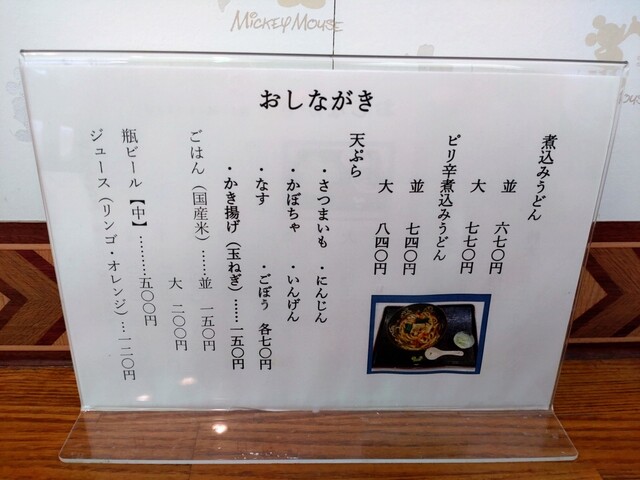 MICKEY MOUSE
おしながき
煮込みうどん
並 六七〇円
大 七七〇円
ピリ辛煮込みうどん
並 七四〇円
大 八四〇円
天ぷら
・さつまいも ・にんじん
・かぼちゃ ・いんげん
・なす ・ごぼう 各七〇円
・かき揚げ（玉ねぎ）……一五〇円
ごはん（国産米）……並 一五〇円
大 二〇〇円
瓶ビール【中】………五〇〇円
ジュース（リンゴ・オレンジ）…一二〇円